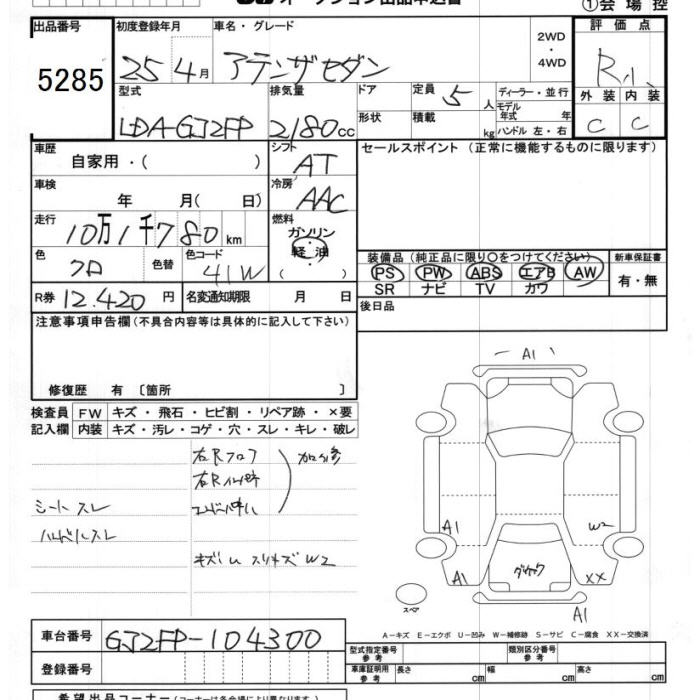 オークション出品申込書 ①会場控
出品番号 5285
初度登録年月 25 4月
車名・グレード アテンザセダン
2WD・4WD
評価点 R小
外装 C 内装 C
型式 LDA-GJ2FP
排気量 2180cc
ドア 形状
定員 5人
積載 kg
ディーラー・並行
モデル年式 年
ハンドル 左・右
車歴 自家用・( )
シフト AT
セールスポイント (正常に機能するものに限ります)
車検 年 月( 日)
冷房 AAC
走行 10万1千780km
燃料 ガソリン・軽油 ( )
色 クロ 色替
色コード 41W
装備品 (純正品に限り○をつけてください)
PS PW ABS エアB AW
SR ナビ TV カワ
新車保証書 有・無
R券 12.420円
名変通知期限 月 日
後日品
注意事項申告欄(不具合内容等は具体的に記入して下さい)
修復歴 有〔箇所 〕
検査員記入欄
FW キズ・飛石・ヒビ割・リペア跡・×要
内装 キズ・汚レ・コゲ・穴・スレ・キレ・破レ
右Rフロア
シート スレ
ハンドルスレ
W2
A1
A1
W2
A1
XX
A1
スペア
A-キズ E-エクボ U-凹み W-補修跡 S-サビ C-腐食 XX-交換済
車台番号 GJ2FP-104300
登録番号
型式指定番号 参考
類別区分番号 参考
車庫証明用 参考 長さ cm 幅 cm 高さ cm
希望出品コーナー(コーナーは各会場により異なります)